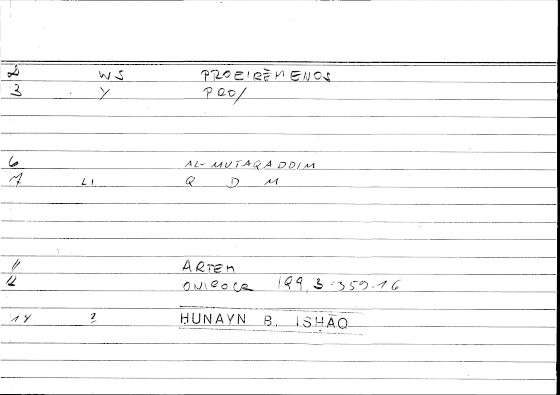 2 WS PROEIRĒMENOS
3 Y PRO/
6 AL-MUTAQADDIM
7 LI Q D M
11 ARTEM
12 ONIROCR 199,3-359.16
14 ? HUNAYN B. ISHĀQ